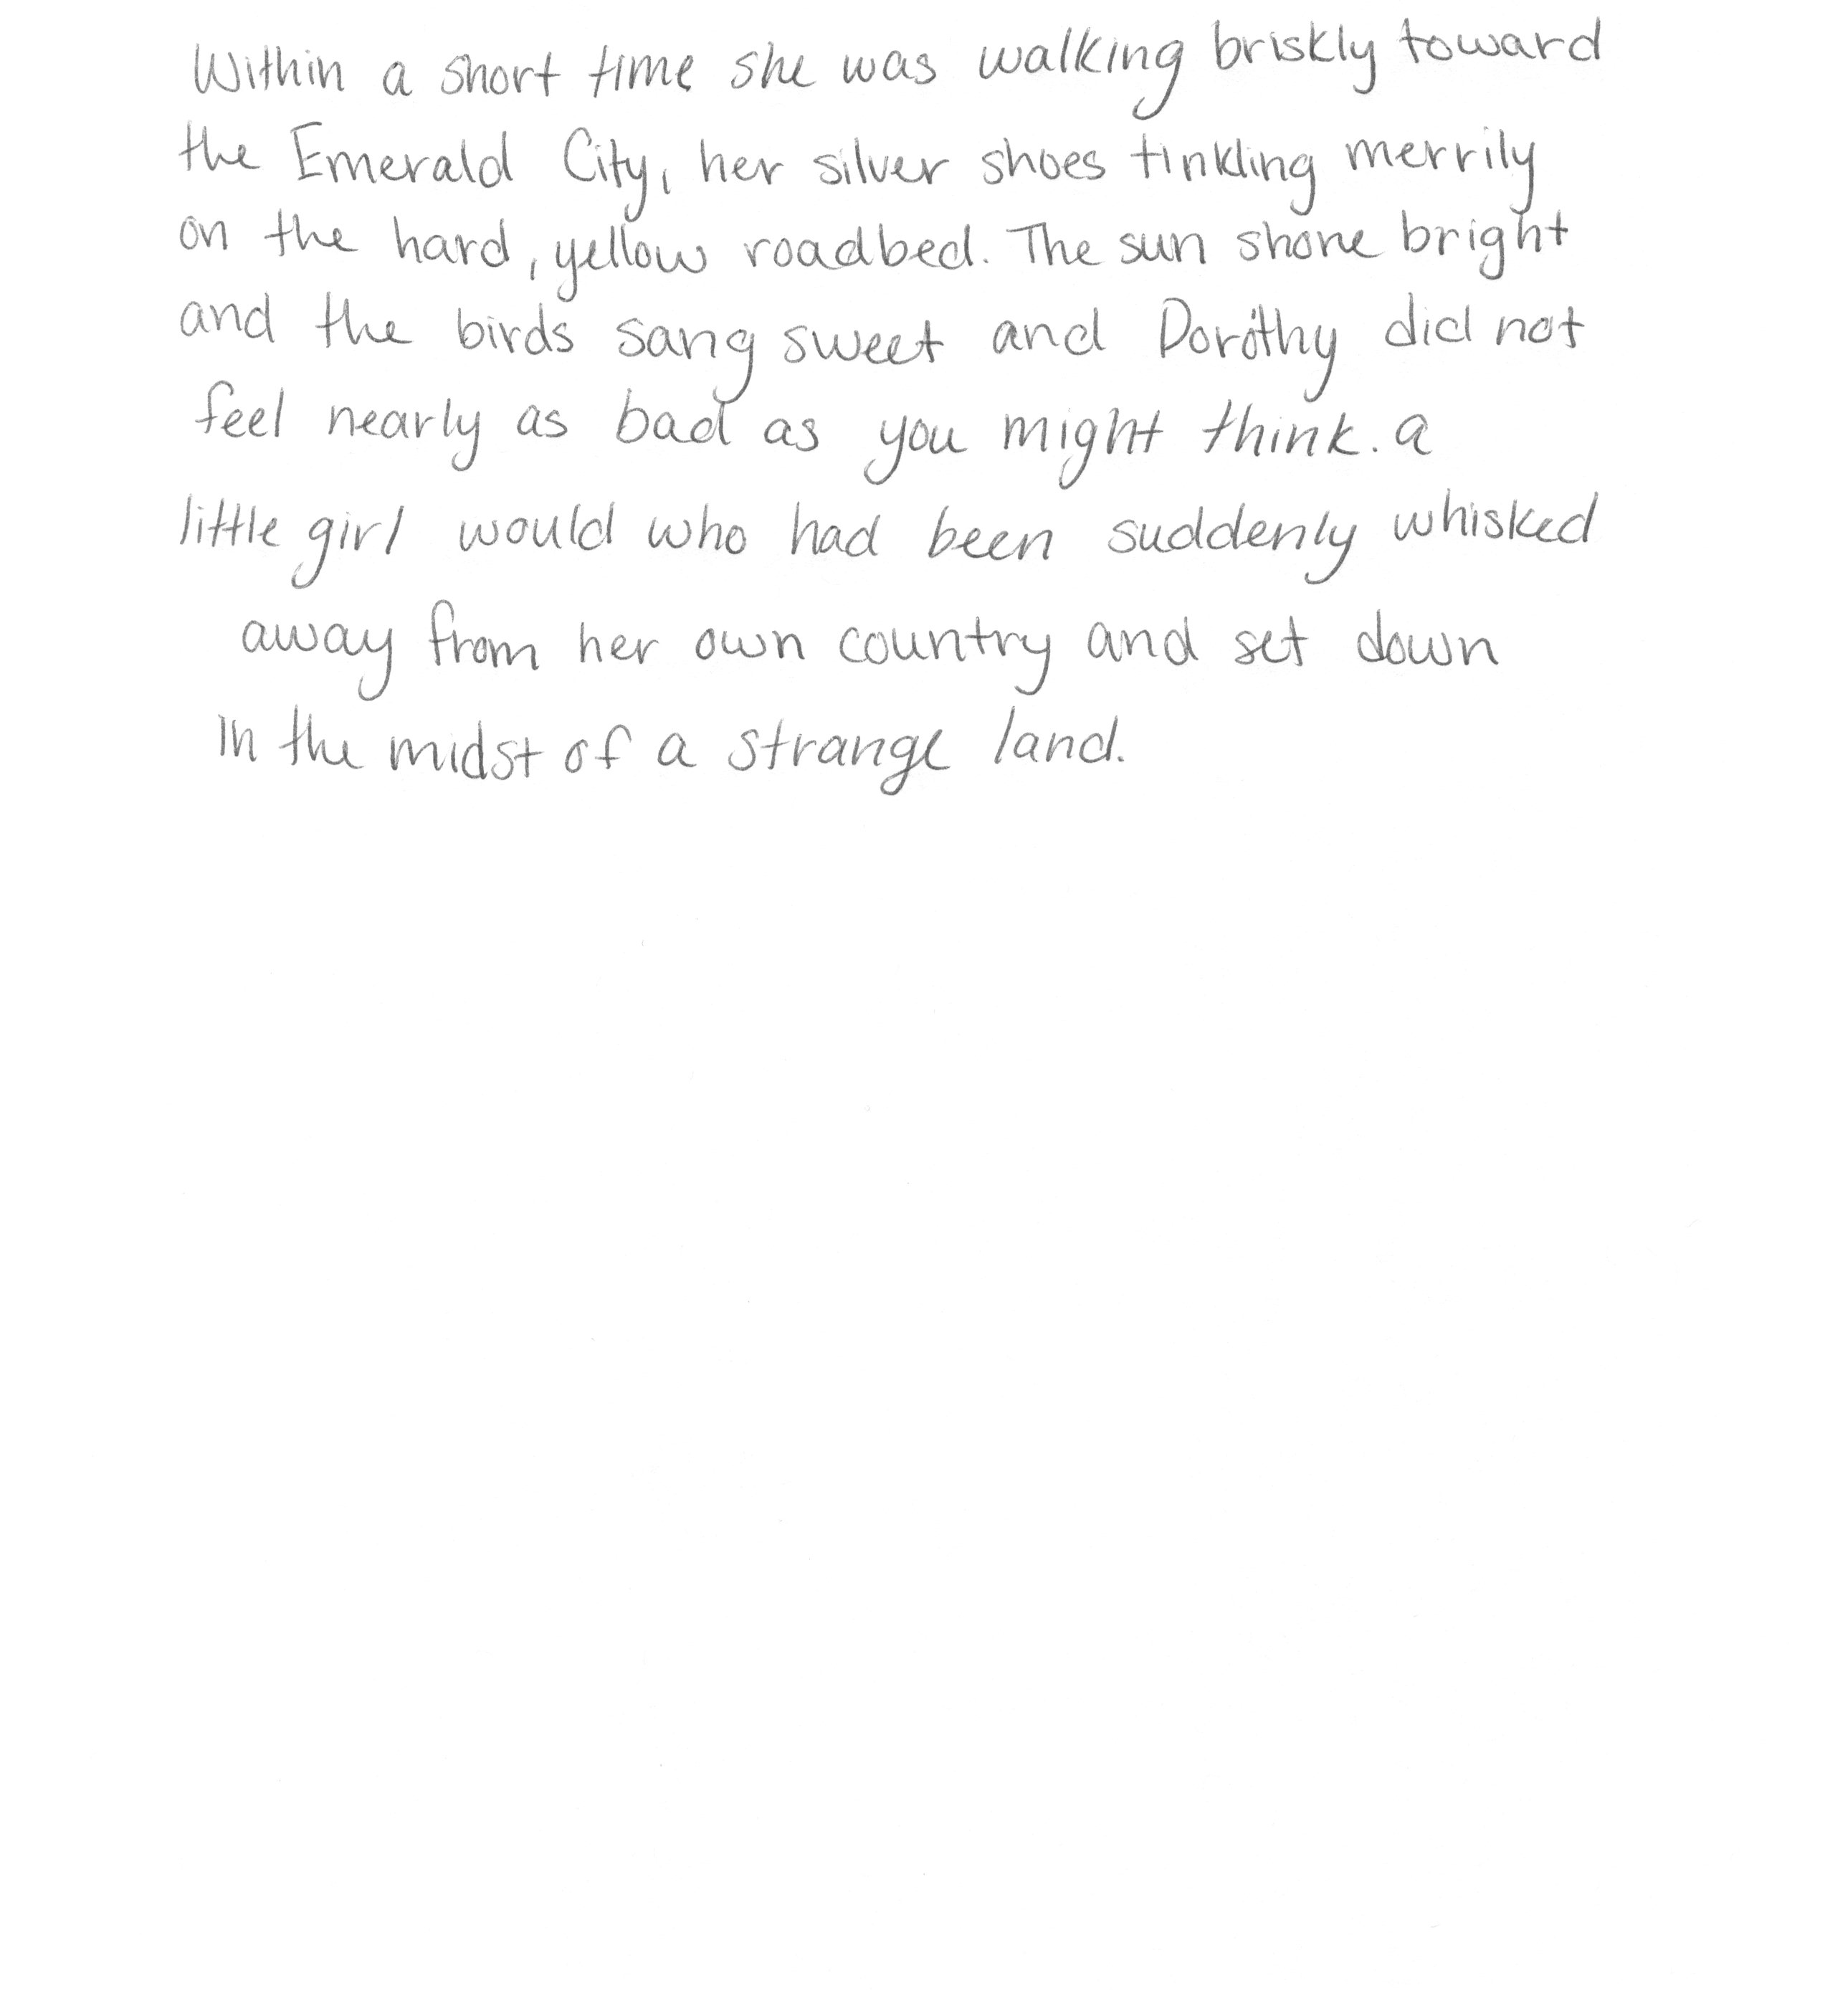 Within a short time she was walking briskly toward
the Emerald City, her silver shoes tinkling merrily
on the hard, yellow roadbed. The sun shone bright
and the birds sang sweet and Dorothy did not
feel nearly as bad as you might think. a
little girl would who had been suddenly whisked
away from her own country and set down
in the midst of a strange land.